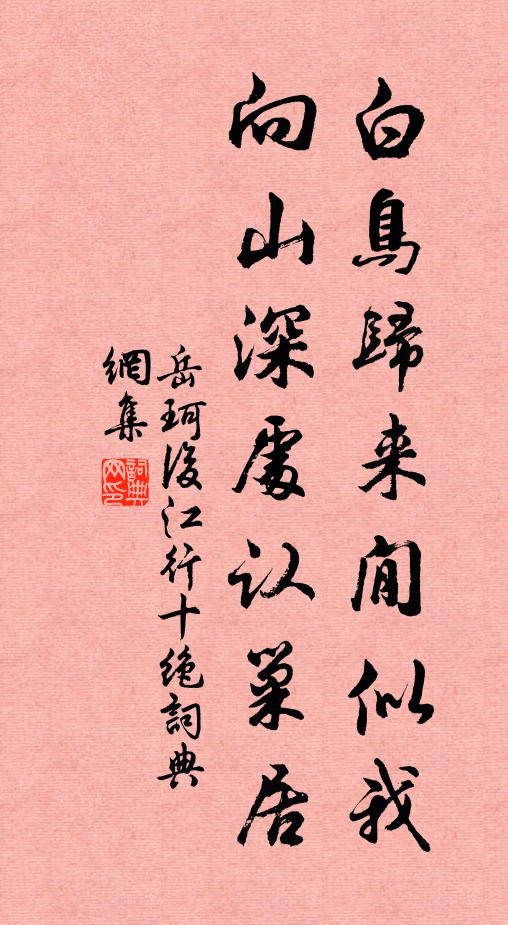 白鳥歸来閒似我
向山深處认巢居
岳珂後江行十绝詞典
網集
詞典
网印